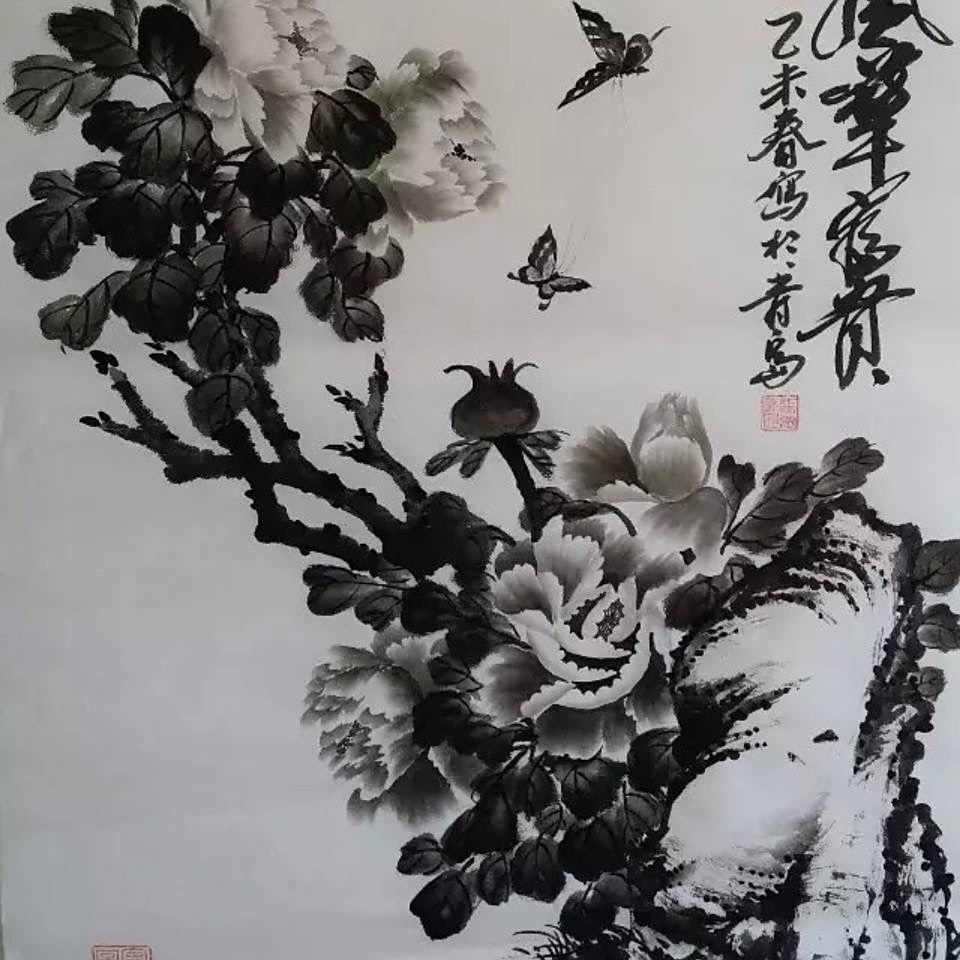 風華富貴
乙未春写於青島